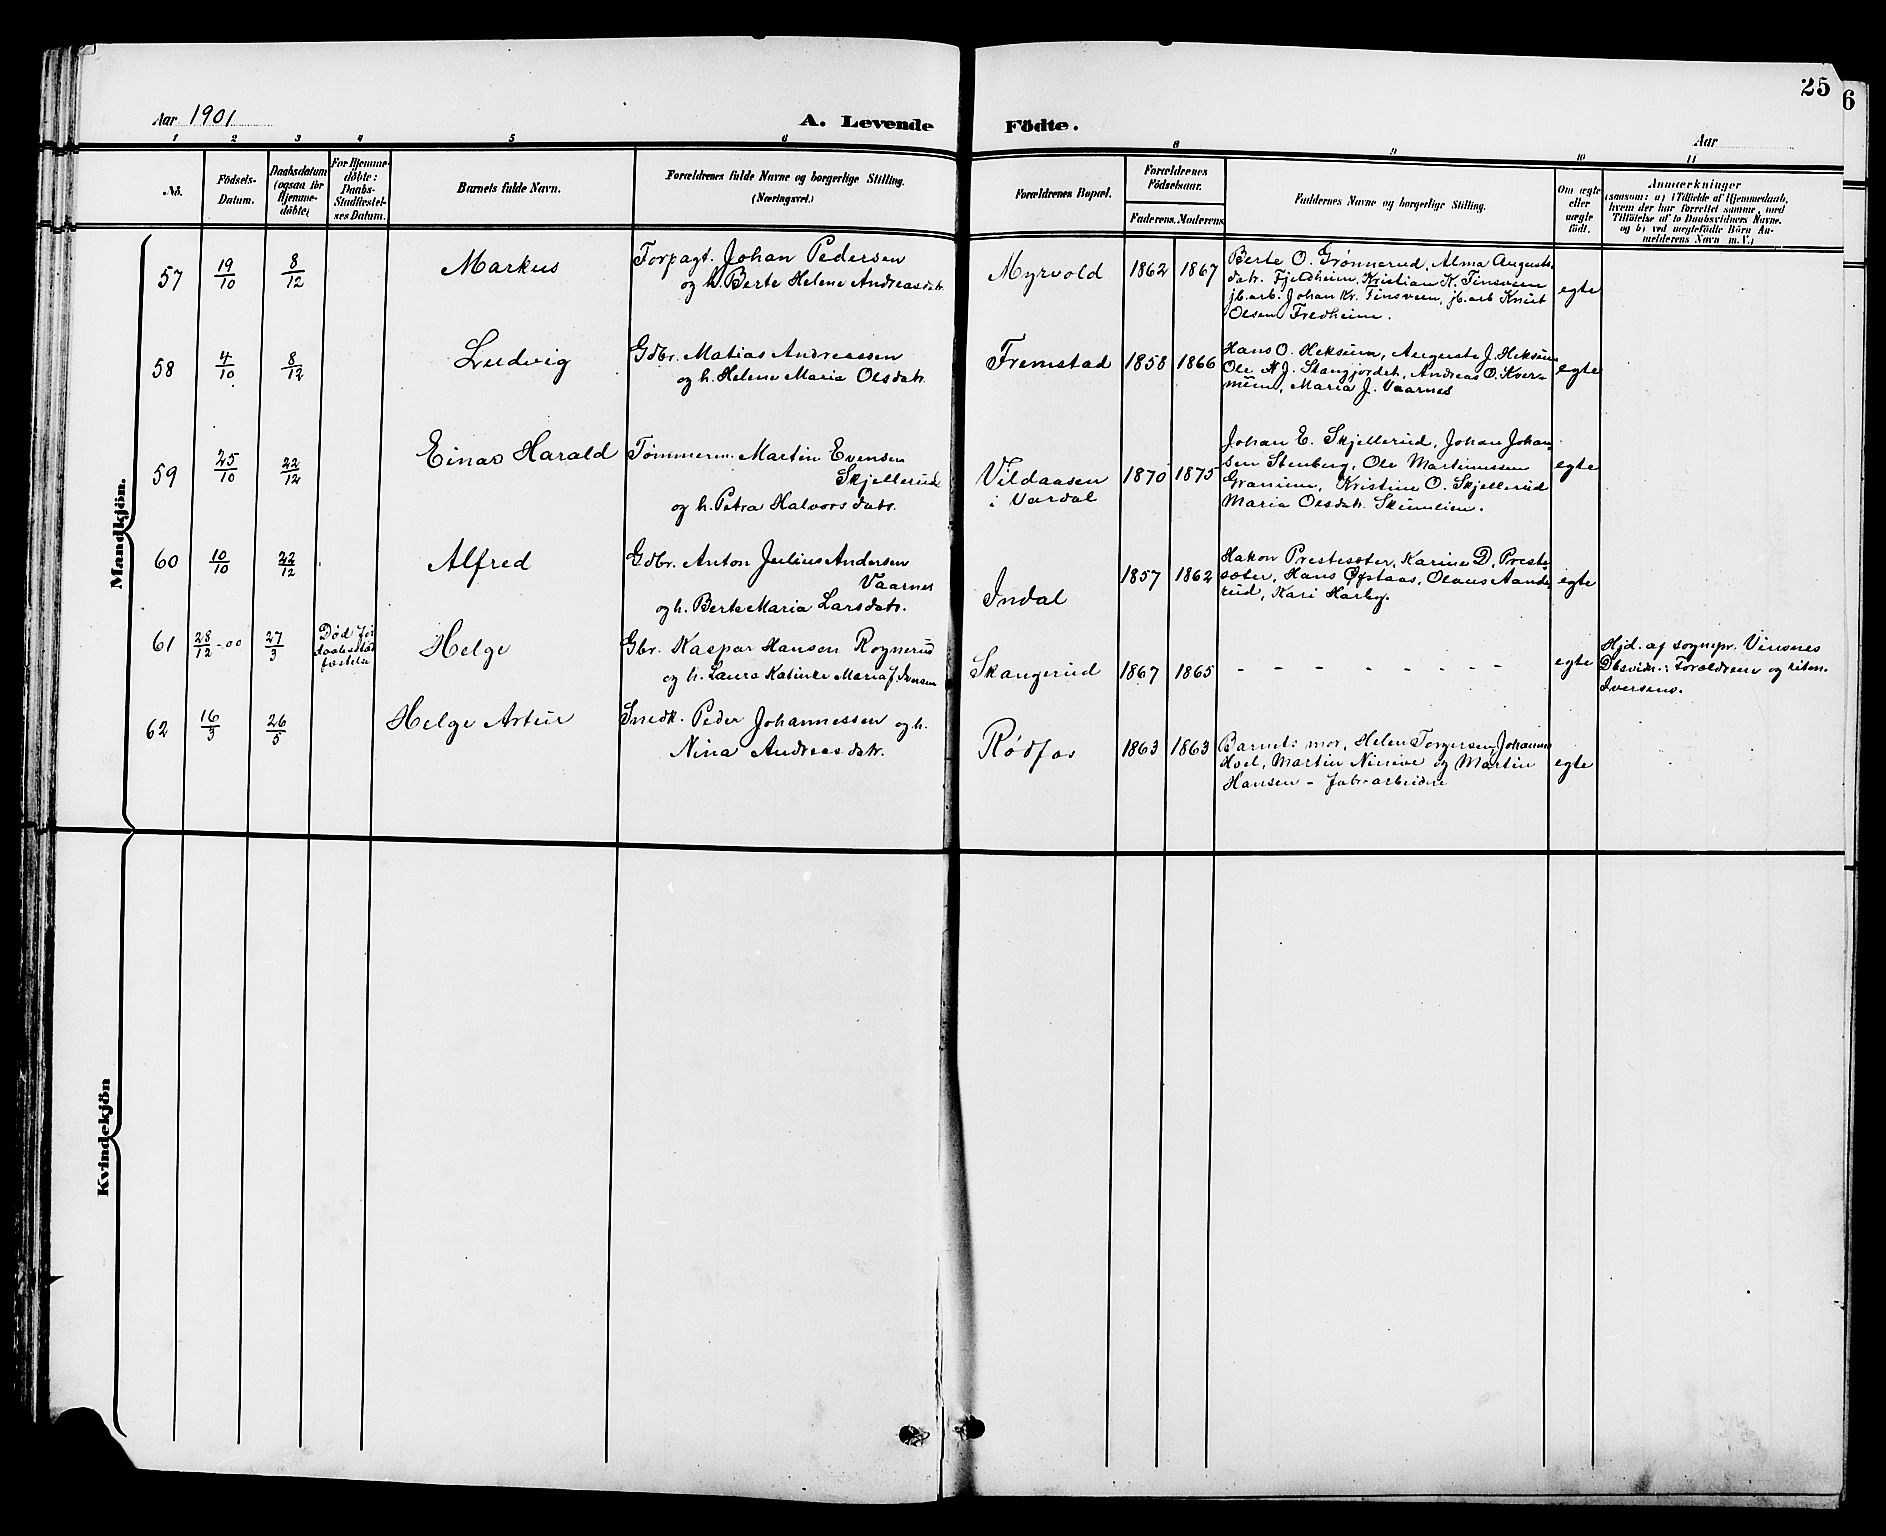 25
6
Aar 1901
A. Levende Födte.
Aar
1 2 3 4 5 6 8 9 10 11
No.
Födsels-
Datum.
Daabsdatum
(ogsaa for
Hjemme-
döbte)
For Hjemme-
döbte:
Daabs-
Stadfæstel-
ses Datum.
Barnets fulde Navn.
Forældrenes fulde Navne og borgerlige Stilling.
(Næringsvei.)
Forældrenes Bopæl.
Forældrenes
Födselsaar.
Faderens. Moderens.
Faddernes Navne og borgerlige Stilling.
Om ægte
eller
uægte
födt.
Anmærkninger
(saasom: a) i Tilfælde af Hjemmedaab,
hvem der har forrettet samme, med
Tilföielse af to Daabsvidners Navne.
og b) ved uægtefödte Börn An-
melderens Navn m. V.)
Mandkjön.
57 19/10 8/12 Markus
Forpagt. Johan Pedersen
og h. Berte Helene Andreasdatr.
Myrvold 1862 1867
Berte O. Grønnerud, Alma Augusts-
datr. Fjeldheim, Kristian K. Tinsveen
jb.arb. Johan Kr. Tinsveen, jb.arb Knut
Olsen Fredheim.
egte
58 4/10 8/12 Ludvig
Gdbr. Matias Andreassen
og h. Helene Maria Olsdatr.
Fremstad 1858 1866
Hans O. Heksum, Auguste J. Heksum
Ole N. J. Stangjordet, Andreas O. Kver-
num, Maria J. Vaarnes
egte
59 25/10 22/12 Einar Harald
Tømmerm. Martin Evensen
Skjellerud
og h. Petra Halvorsdatr.
Vildaasen
i Vardal
1870 1875
Johan E. Skjellerud, Johan Johan-
sen Stenberg, Ole Martinussen
Granum, Kristine O. Skjellerud
Maria Olsdatr. Skumlien.
egte
60 10/10 22/12 Alfred
Gdbr. Anton Julius Andersen
Vaarnes
og h. Berte Maria Larsdatr.
Indal 1857 1862
Hakon Prestesæter, Karine D. Preste-
sæter, Hans Øfstaas, Olaus Aande-
rud, Kari Harby.
egte
61 28/12-00 27/3
Død før
Helge
Gbr. Kaspar Hansen Rognerud
og h. Laura Katinke Maria J. Iversen
Skangerud 1867 1865
- - - - - - - -
egte
Hjd. af sognpr. Vinsnes
Dbsvidn.: Forældrene og
Iversens.
62 16/3 26/5 Helge Artur
Snedk. Peder Johannessen og h.
Nina Andreasdatr.
Rødfos 1863 1863
Barnets mor, Helen Torgersen, Johannes
Hoel, Martin Ninive og Martin
Hansen - fabr-arbeidere
egte
Kvindekjön